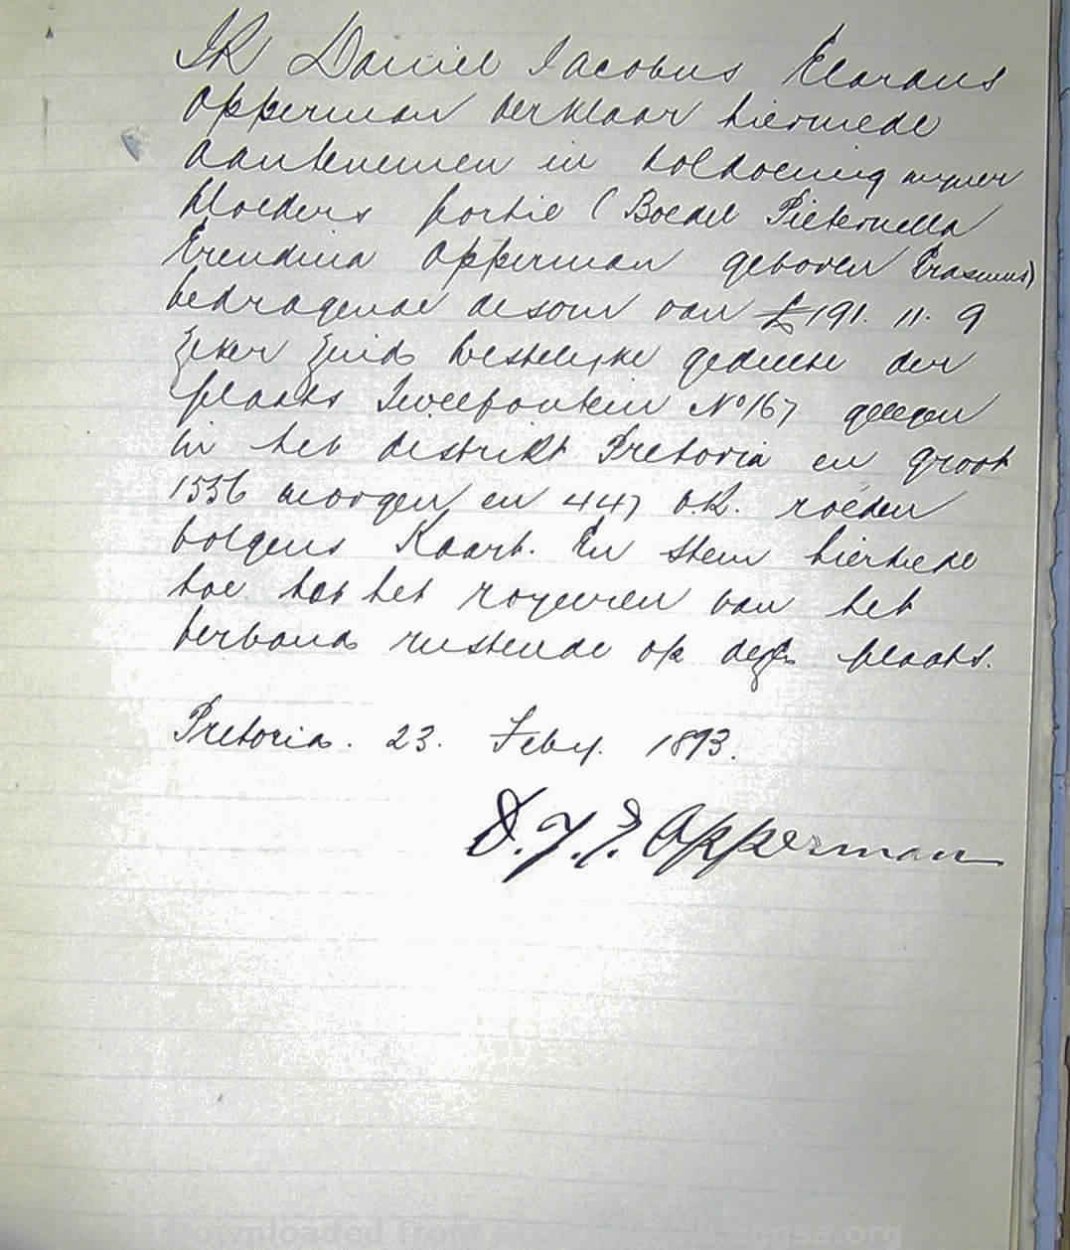 Ik Daniel Jacobus Elardus
Opperman verklaar hiermede
aantenemen in voldoening mijner
Moeders portie (Boedel Pieternella
Erendina Opperman geboren Erasmus)
bedragende de som van £191. 11. 9
Zeker Zuid Westelijke gedeelte der
plaats Tweefontein No 167 gelegen
in het distrikt Pretoria en groot
1556 morgen en 447 v.R. roeden
volgens Kaart. En stem hiermede
toe tot het royeeren van het
verband rustende op deze plaats.
Pretoria. 23. Feby. 1893.
D. J. E. Opperman
Downloaded from